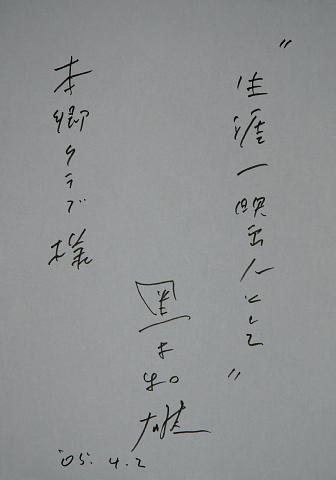 "生涯一映画人として"
黒木和雄
本郷クラブ様
'05. 4. 2